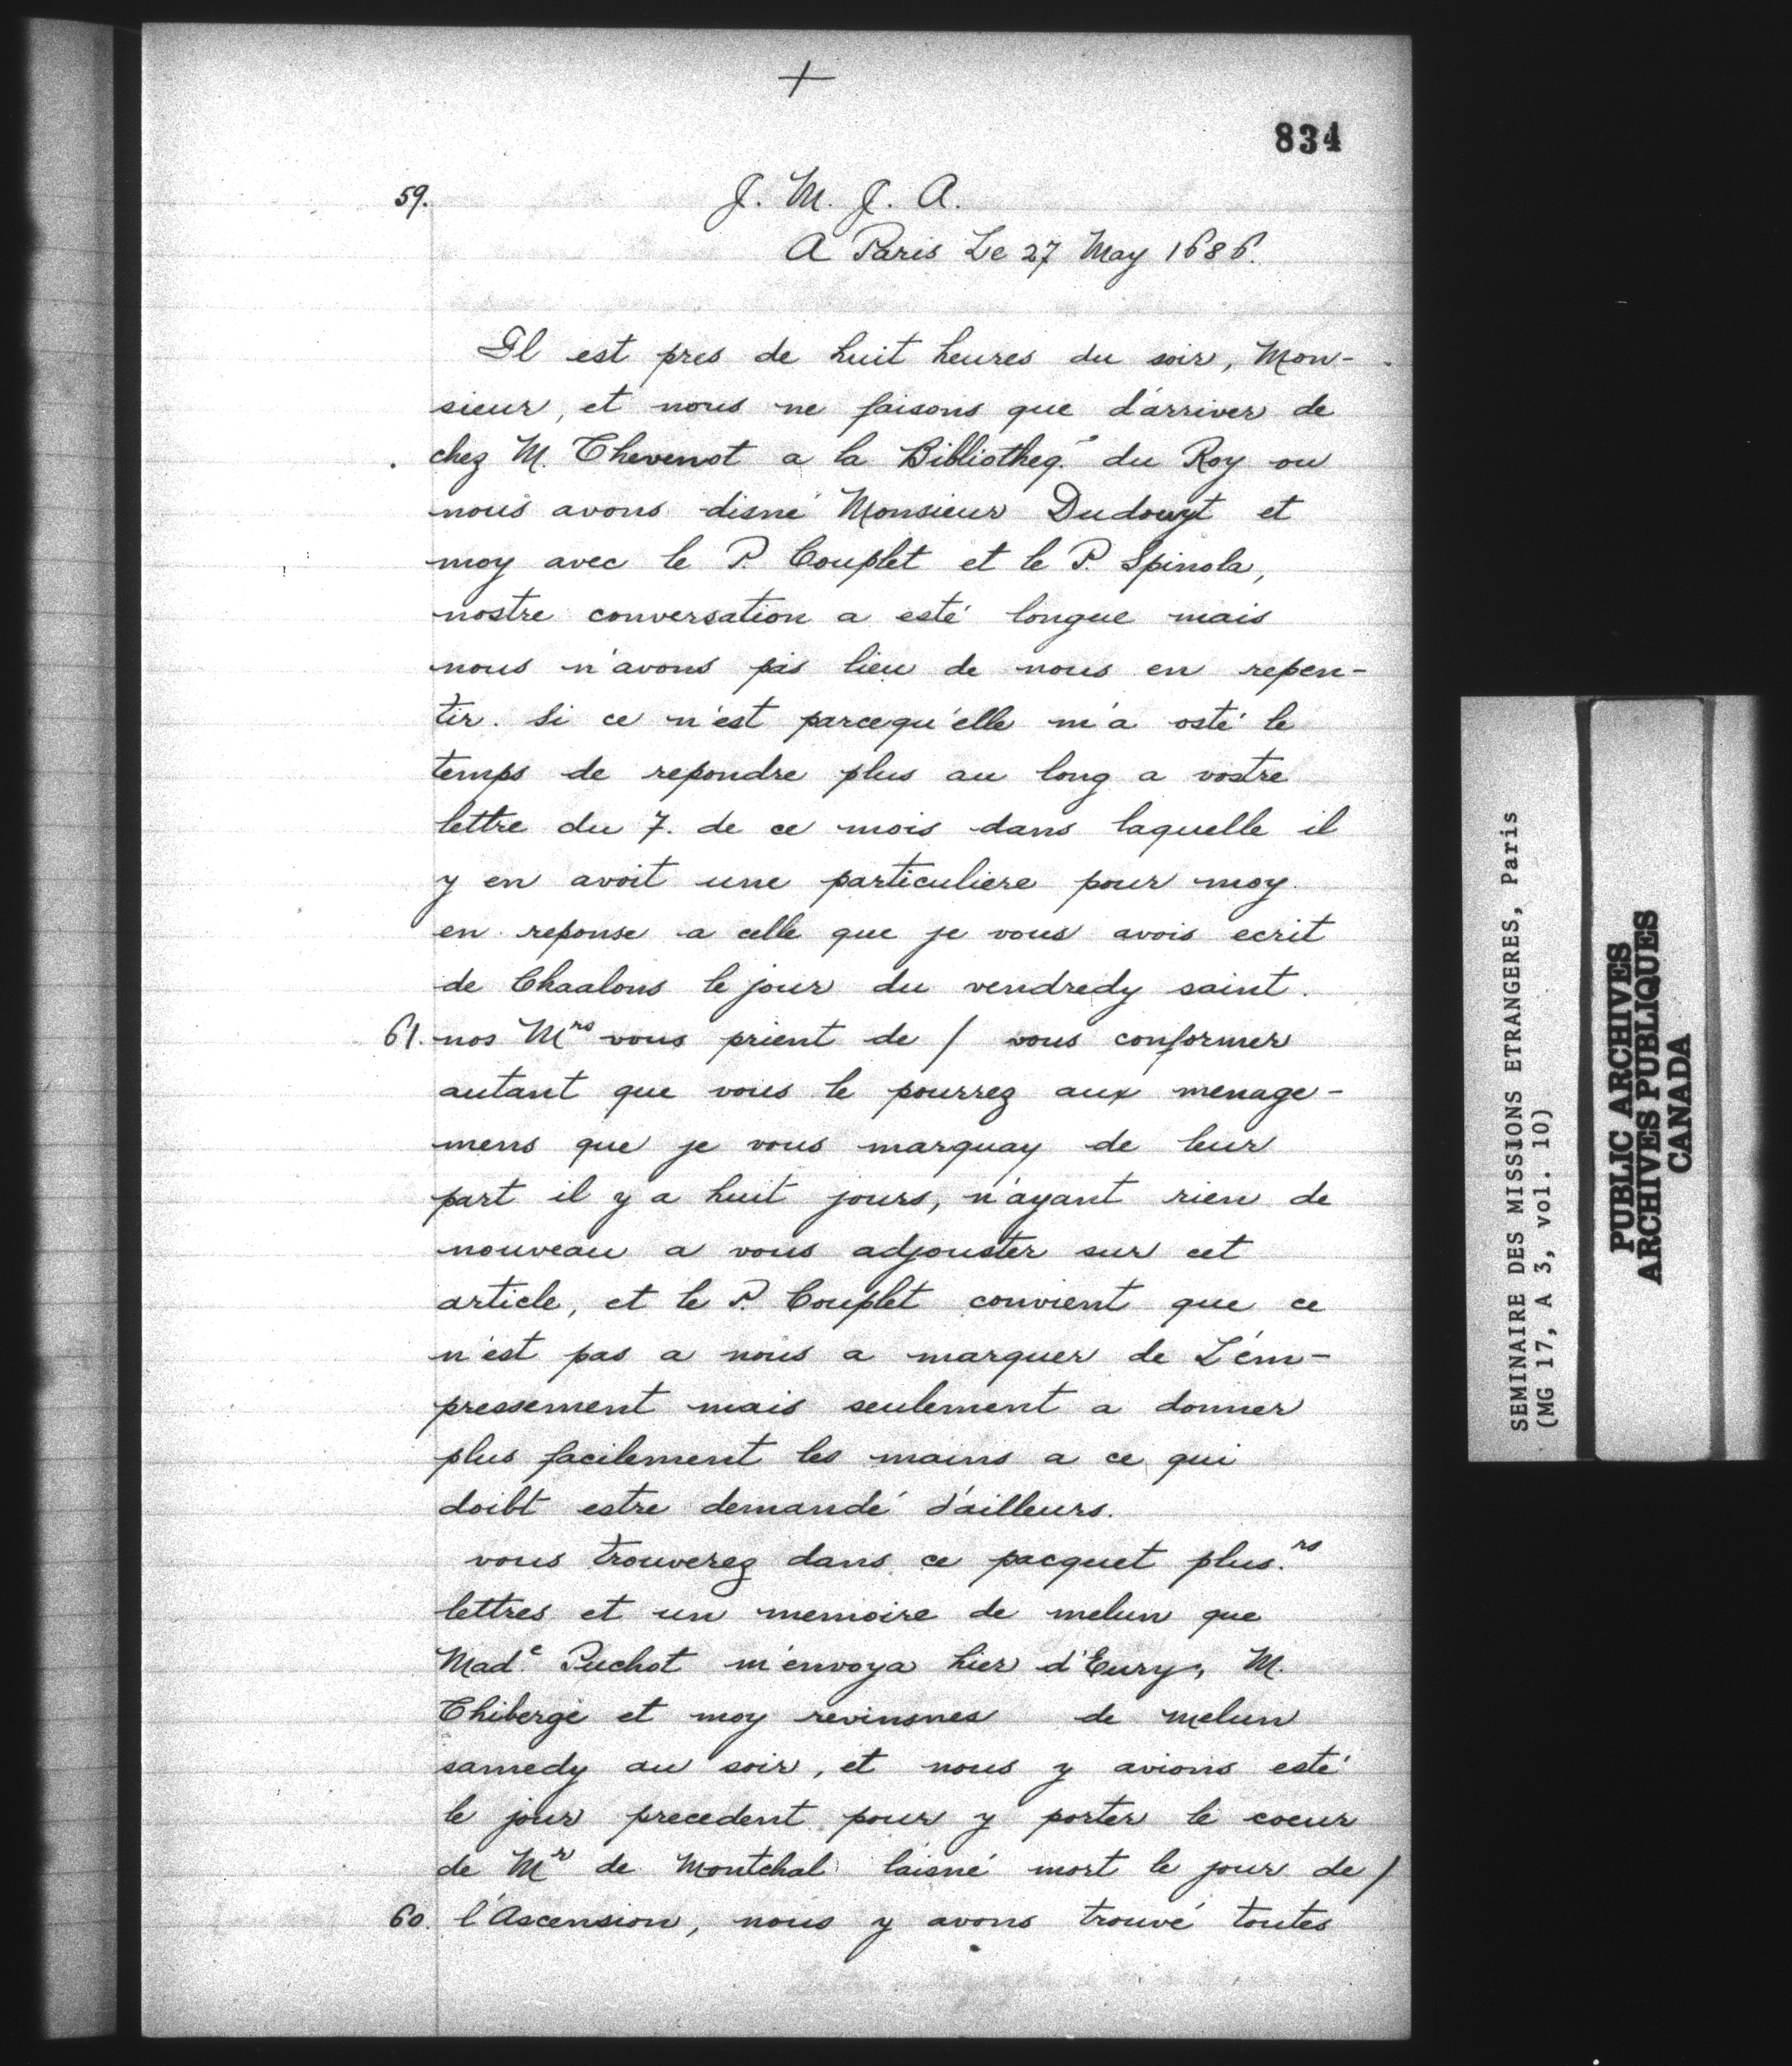 +
834
59. J. M. J. A.
A Paris Le 27 May 1686.
Il est pres de huit heures du soir, Mon-
sieur, et nous ne faisons que d'arriver de
chez M. Thevenot a la Biblioheq. du Roy ou
nous avons disné Monsieur Dudouyt et
moy avec le P. Couplet et le P. Spinola,
nostre conversation a esté longue mais
nous n'avons pas lieu de nous en repen-
tir. si ce n'est parcequ'elle m'a osté le
temps de repondre plus au long a vostre
lettre du 7. de ce mois dans laquelle il
y en avoit une particuliere pour moy
en reponse a celle que je vous avois ecrit
de Chaalons le jour du vendredy saint.
61. nos Mrs vous prient de / vous conformer
autant que vous le pourrez aux menage-
mens que je vous marquay de leur
part il y a huit jours, n'ayant rien de
nouveau a vous adjouster sur cet
article, et le P. Couplet convient que ce
n'est pas a nous a marquer de L'em-
pressement mais seulement a donner
plus facilement les mains a ce qui
doibt estre demandé d'ailleurs.
vous trouverez dans ce pacquet plus.rs
lettres et un memoire de melun que
Mad.e Puchot m'envoya hier d'Eury, M.
Thiberge et moy revinsmes de melun
samedy au soir, et nous y avions esté
le jour precedent pour y porter le coeur
de Mr de Montchal laisné mort le jour de /
60. l'Ascension, nous y avons trouvé toutes
SEMINAIRE DES MISSIONS ETRANGERES, Paris
(MG 17, A 3, vol. 10)
PUBLIC ARCHIVES
ARCHIVES PUBLIQUES
CANADA